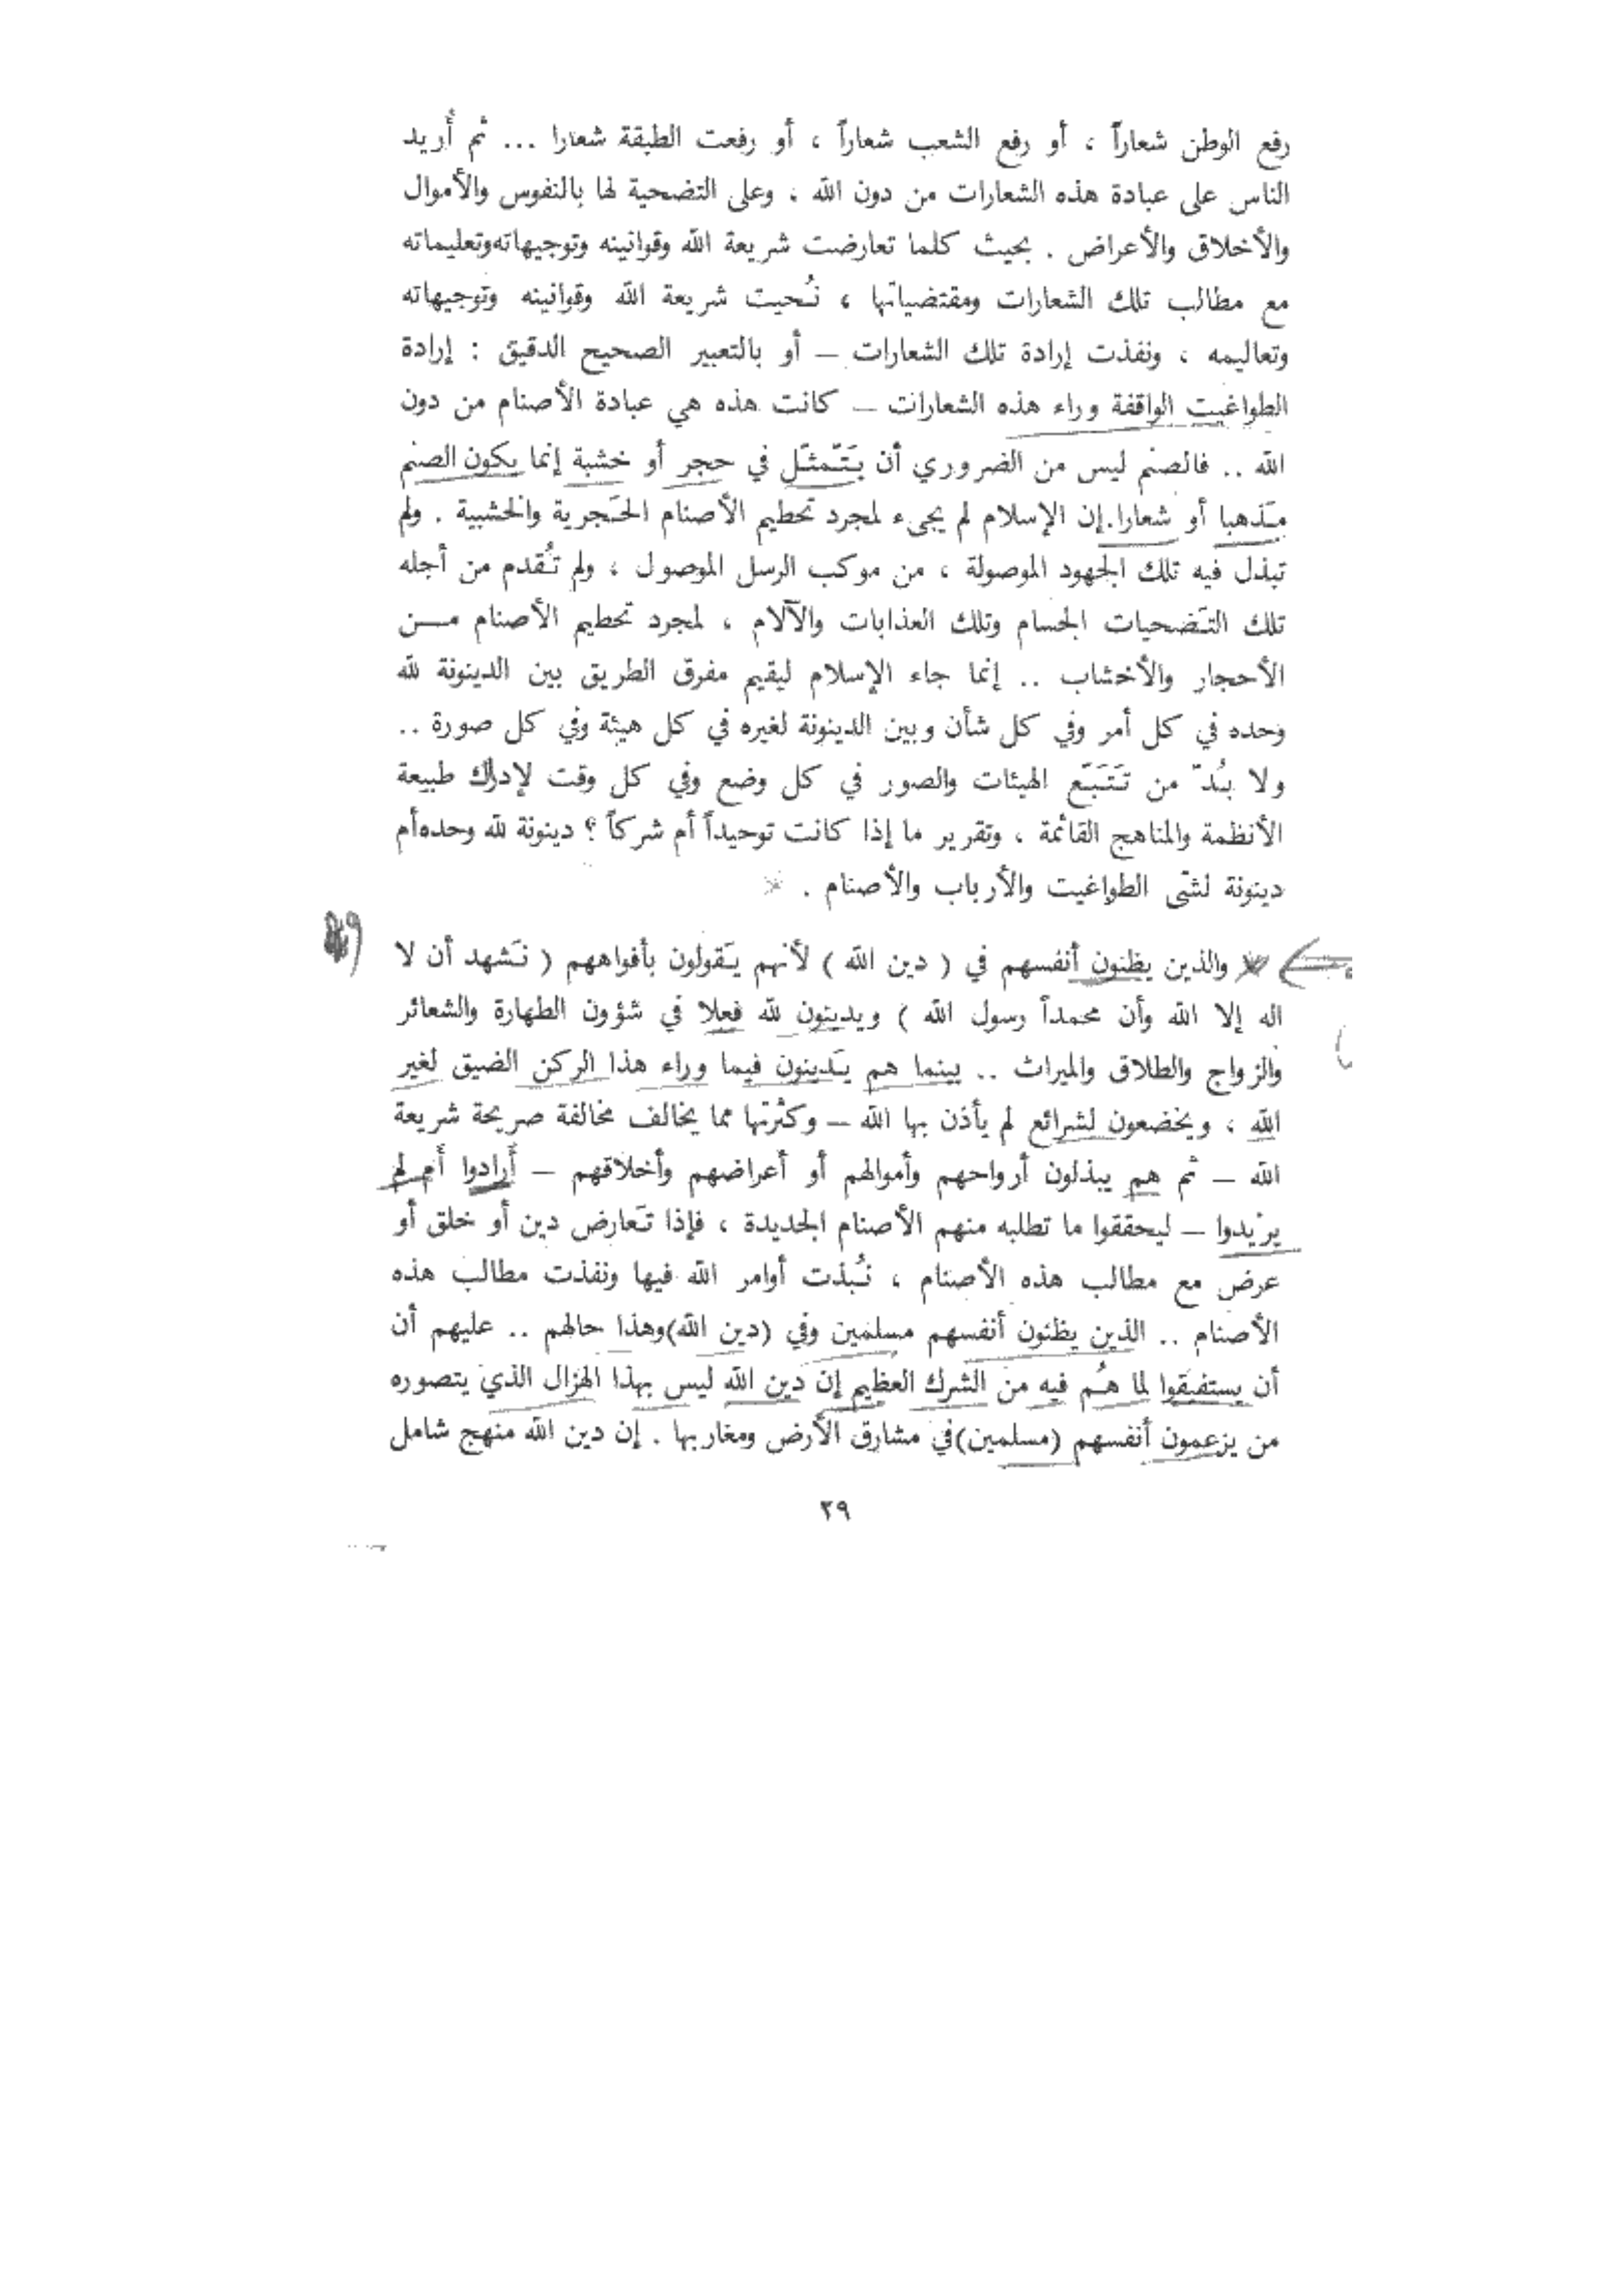 رفع الوطن شعاراً ، أو رفع الشعب شعاراً ، أو رفعت الطبقة شعارا ... ثم أُريد
الناس على عبادة هذه الشعارات من دون الله ، وعلى التضحية لها بالنفوس والأموال
والأخلاق والأعراض . بحيث كلما تعارضت شريعة الله وقوانينه وتوجيهاته وتعليماته
مع مطالب تلك الشعارات ومقتضياتها ، نُحيت شريعة الله وقوانينه وتوجيهاته
وتعاليمه ، ونفذت إرادة تلك الشعارات – أو بالتعبير الصحيح الدقيق : إرادة
الطواغيت الواقفة وراء هذه الشعارات – كانت هذه هي عبادة الأصنام من دون
الله .. فالصنم ليس من الضروري أن يَتَمثّل في حجر أو خشبة إنما يكون الصنم
مَذهبا أو شعارا.إن الإسلام لم يجىء لمجرد تحطيم الأصنام الحَجرية والخشبية . ولم
تبذل فيه تلك الجهود الموصولة ، من موكب الرسل الموصول ، ولم تُقدم من أجله
تلك التَضحيات الجسام وتلك العذابات والآلام ، لمجرد تحطيم الأصنام مـــن
الأحجار والأخشاب .. إنما جاء الإسلام ليقيم مفرق الطريق بين الدينونة لله
وحده في كل أمر وفي كل شأن وبين الدينونة لغيره في كل هيئة وفي كل صورة ..
ولا بُدّ من تَتَبَّع الهيئات والصور في كل وضع وفي كل وقت لإدراك طبيعة
الأنظمة والمناهج القائمة ، وتقرير ما إذا كانت توحيداً أم شركاً ؟ دينونة لله وحده أم
دينونة لشتّى الطواغيت والأرباب والأصنام .
والذين يظنون أنفسهم في ( دين الله ) لأنهم يَقولون بأفواههم ( نَشهد أن لا
اله إلا الله وأن محمداً رسول الله ) ويدينون لله فعلا في شؤون الطهارة والشعائر
والزواج والطلاق والميراث .. بينما هم يَدينون فيما وراء هذا الركن الضيق لغير
الله ، ويخضعون لشرائع لم يأذن بها الله – وكثرتها مما يخالف مخالفة صريحة شريعة
الله – ثم هم يبذلون أرواحهم وأموالهم أو أعراضهم وأخلاقهم – أرادوا أم لم
يريدوا – ليحققوا ما تطلبه منهم الأصنام الجديدة ، فإذا تَعارض دين أو خلق أو
عرض مع مطالب هذه الأصنام ، نُبذت أوامر الله فيها ونفذت مطالب هذه
الأصنام .. الذين يظنون أنفسهم مسلمين وفي (دين الله)وهذا حالهم .. عليهم أن
أن يستفيقوا لما هُم فيه من الشرك العظيم إن دين الله ليس بهذا الهزال الذي يتصوره
من يزعمون أنفسهم (مسلمين)في مشارق الأرض ومغاربها . إن دين الله منهج شامل
٢٩